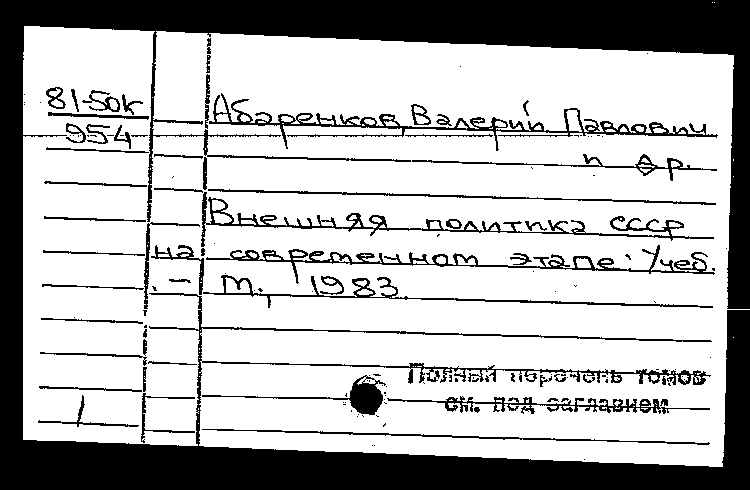 81-50к
954
Абаренков, Валерий Павлович
и др.
Внешняя политика СССР
на современном этапе: Учеб.
. – М., 1983.
Полный перечень томов
см. под заглавием
1